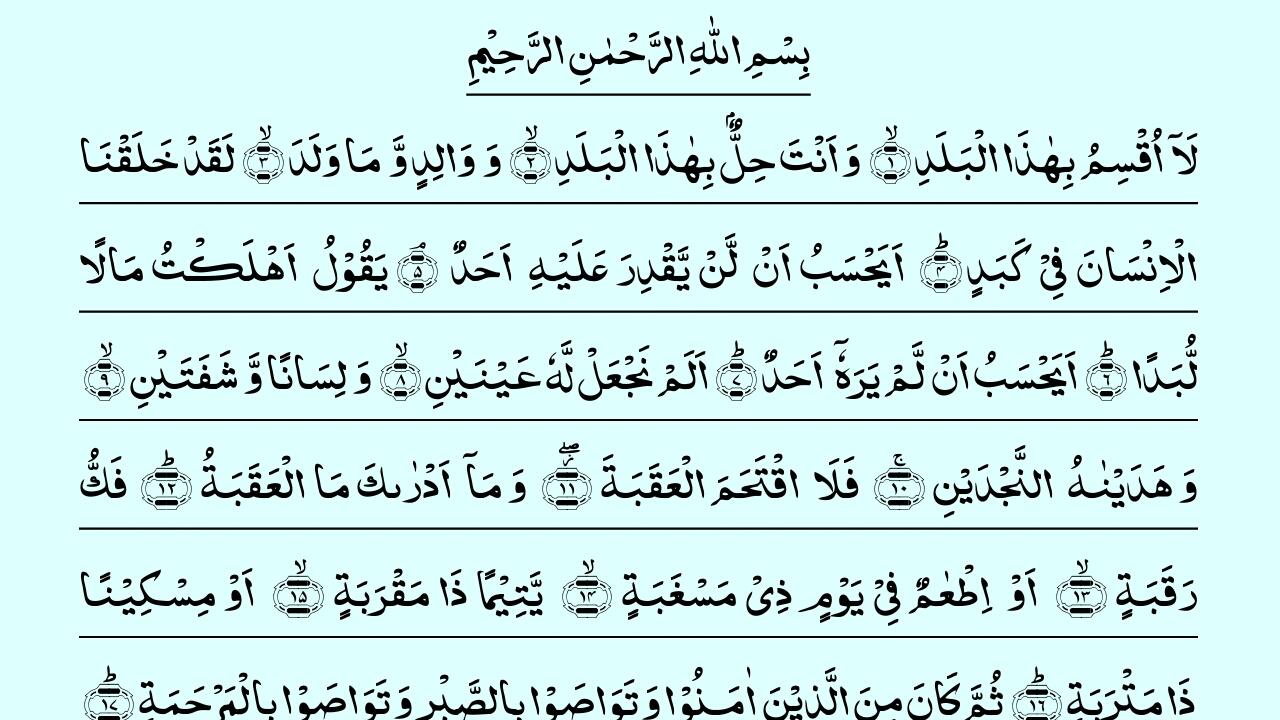 بِسْمِ اللّٰهِ الرَّحْمٰنِ الرَّحِیْمِ
لَاۤ اُقْسِمُ بِهٰذَا الْبَلَدِۙ۝۱ وَ اَنْتَ حِلٌّۢ بِهٰذَا الْبَلَدِۙ۝۲ وَ وَالِدٍ وَّ مَا وَلَدَۙ۝۳ لَقَدْ خَلَقْنَا
الْاِنْسَانَ فِیْ كَبَدٍؕ۝۴ اَیَحْسَبُ اَنْ لَّنْ یَّقْدِرَ عَلَیْهِ اَحَدٌۘ۝۵ یَقُوْلُ اَهْلَكْتُ مَالًا
لُّبَدًاؕ۝۶ اَیَحْسَبُ اَنْ لَّمْ یَرَهٗۤ اَحَدٌؕ۝۷ اَلَمْ نَجْعَلْ لَّهٗ عَیْنَیْنِۙ۝۸ وَ لِسَانًا وَّ شَفَتَیْنِۙ۝۹
وَ هَدَیْنٰهُ النَّجْدَیْنِۚ۝۱۰ فَلَا اقْتَحَمَ الْعَقَبَةَؗۖ۝۱۱ وَ مَاۤ اَدْرٰىكَ مَا الْعَقَبَةُؕ۝۱۲ فَكُّ
رَقَبَةٍۙ۝۱۳ اَوْ اِطْعٰمٌ فِیْ یَوْمٍ ذِیْ مَسْغَبَةٍۙ۝۱۴ یَّتِیْمًا ذَا مَقْرَبَةٍۙ۝۱۵ اَوْ مِسْكِیْنًا
ذَا مَتْرَبَةٍؕ۝۱۶ ثُمَّ كَانَ مِنَ الَّذِیْنَ اٰمَنُوْا وَ تَوَاصَوْا بِالصَّبْرِ وَ تَوَاصَوْا بِالْمَرْحَمَةِؕ۝۱۷